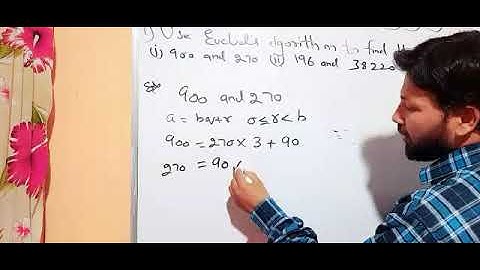 1) Use Euclid's algorithm to find the
(i) 900 and 270 (ii) 196 and 38220
900 and 270
a = bq+r 0≤r<b
900 = 270 × 3 + 90
270 = 90 ×